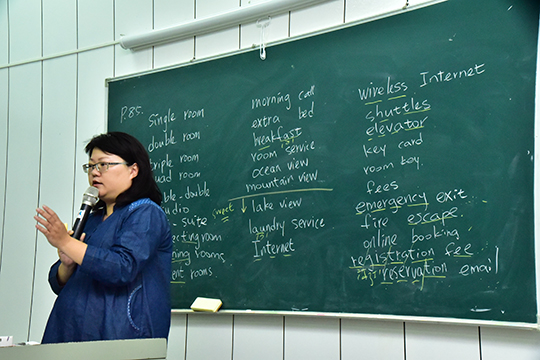 P.85.
Single room
double room
triple room
quad room
double-double
studio
suite
sweet
connecting room
adjoining rooms
adjacent rooms
morning call
extra bed
breakfast
room service
ocean view
mountain view
lake view
laundry service
Internet
wireless Internet
shuttles
elevator
key card
room key.
fees
emergency exit
fire escape.
online booking
registration fee
reservation email